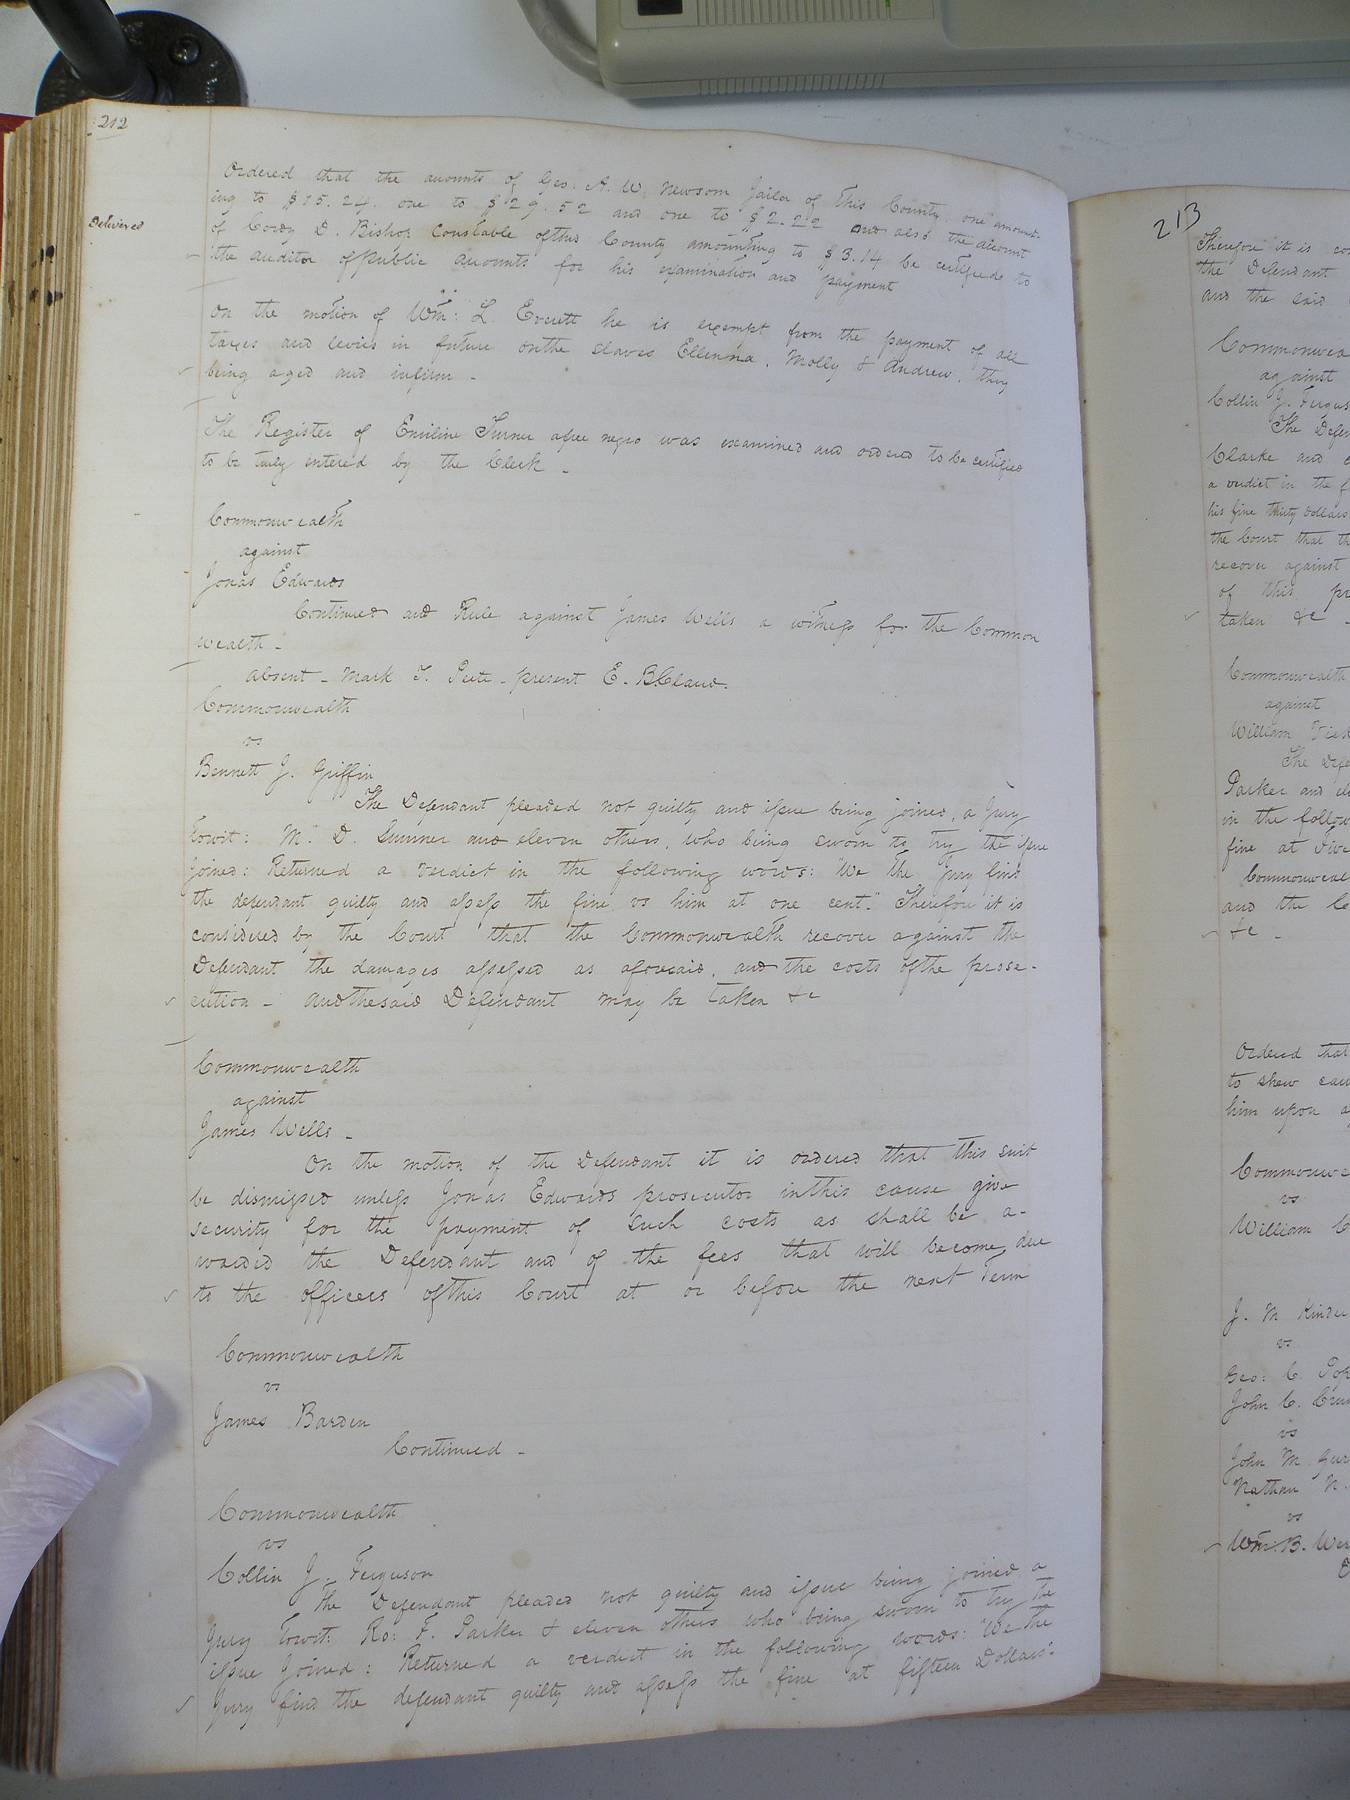 212
Ordered that the accounts of Geo. A. W. Newsom Jailor of this County, one amount-
ing to $15.24. one to $29.52 and one to $2.22 and also the account
Delivered
of Cordy D. Bishop Constable ofthis County amounting to $3.14 be certified to
the auditor ofpublic accounts for his examination and payment
On the motion of Wm: L. Everett he is exempt from the payment of all
taxes and levies in future onthe slaves Ellenna, Molly & Andrew, they
being aged and infirm -
The Register of Emiline Turner afree negro was examined and ordered to be certified
to be truly entered by the Clerk -
Commonwealth
against
Jonas Edwards
Continued and Rule against James Wells a witness for the Common
wealth -
Absent - Mark T. Pete - present E. B. Claud.
Commonwealth
vs
Bennett J. Griffin
The Defendant pleaded not guilty and issue being joined, a Jury
towit: M. D. Sumner and eleven others, who being sworn to try the issue
Joined: Returned a verdict in the following words: "We the Jury find
the defendant guilty and assess the fine vs him at one cent." Therefore it is
considered by the Court that the Commonwealth recover against the
Defendant the damages assessed as aforesaid, and the costs ofthe prose-
cution - andthesaid Defendant may be taken &c
Commonwealth
against
James Wells -
On the motion of the Defendant it is ordered that this suit
be dismissed unless Jonas Edwards prosecutor inthis cause give
security for the payment of such costs as shall be a-
warded the Defendant and of the fees that will become due
to the officers ofthis Court at or before the next Term
Commonwealth
vs
James Barden
Continued -
Commonwealth
vs
Collin J. Ferguson
The Defendant pleaded not guilty and issue being joined a
Jury towit: Ro: F. Parker & eleven others who being sworn to try the
issue Joined: Returned a verdict in the following words: "We the
Jury find the defendant guilty and assess the fine at fifteen Dollars".
213
Therefore it is
the Defendant
and the said
against
Collin J.
The
Clarke and
a verdict in the
his fine thirty dollars
the Court that
recover against
of this
taken &c -
Commonwealth
against
William
The
Parker and
in the
fine at
and the
&c -
Ordered that
to shew
him upon
vs
William
J. M
vs
Geo: C.
John C.
vs
John M
Nathan N.
vs
Wm. B.